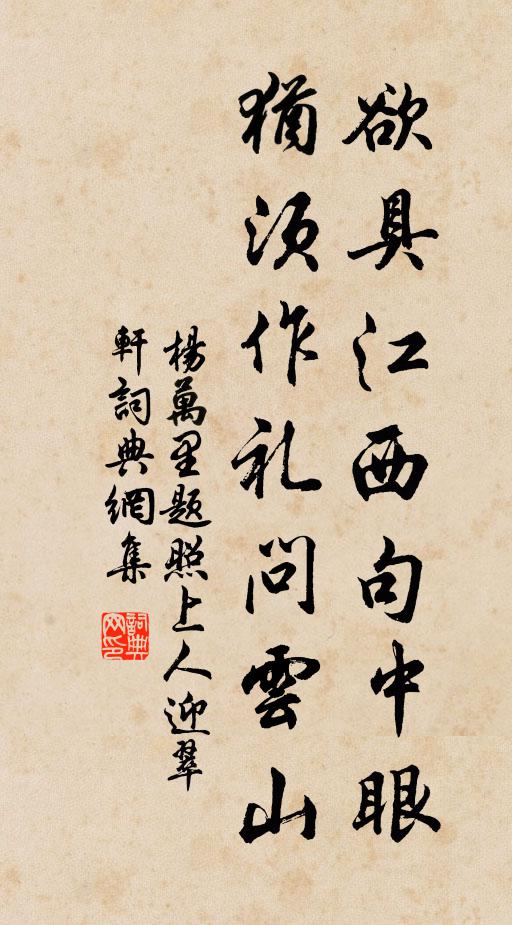 欲具江西句中眼
猶須作礼問雲山
楊萬里題照上人迎翠
軒詞典網集
詞典
网印